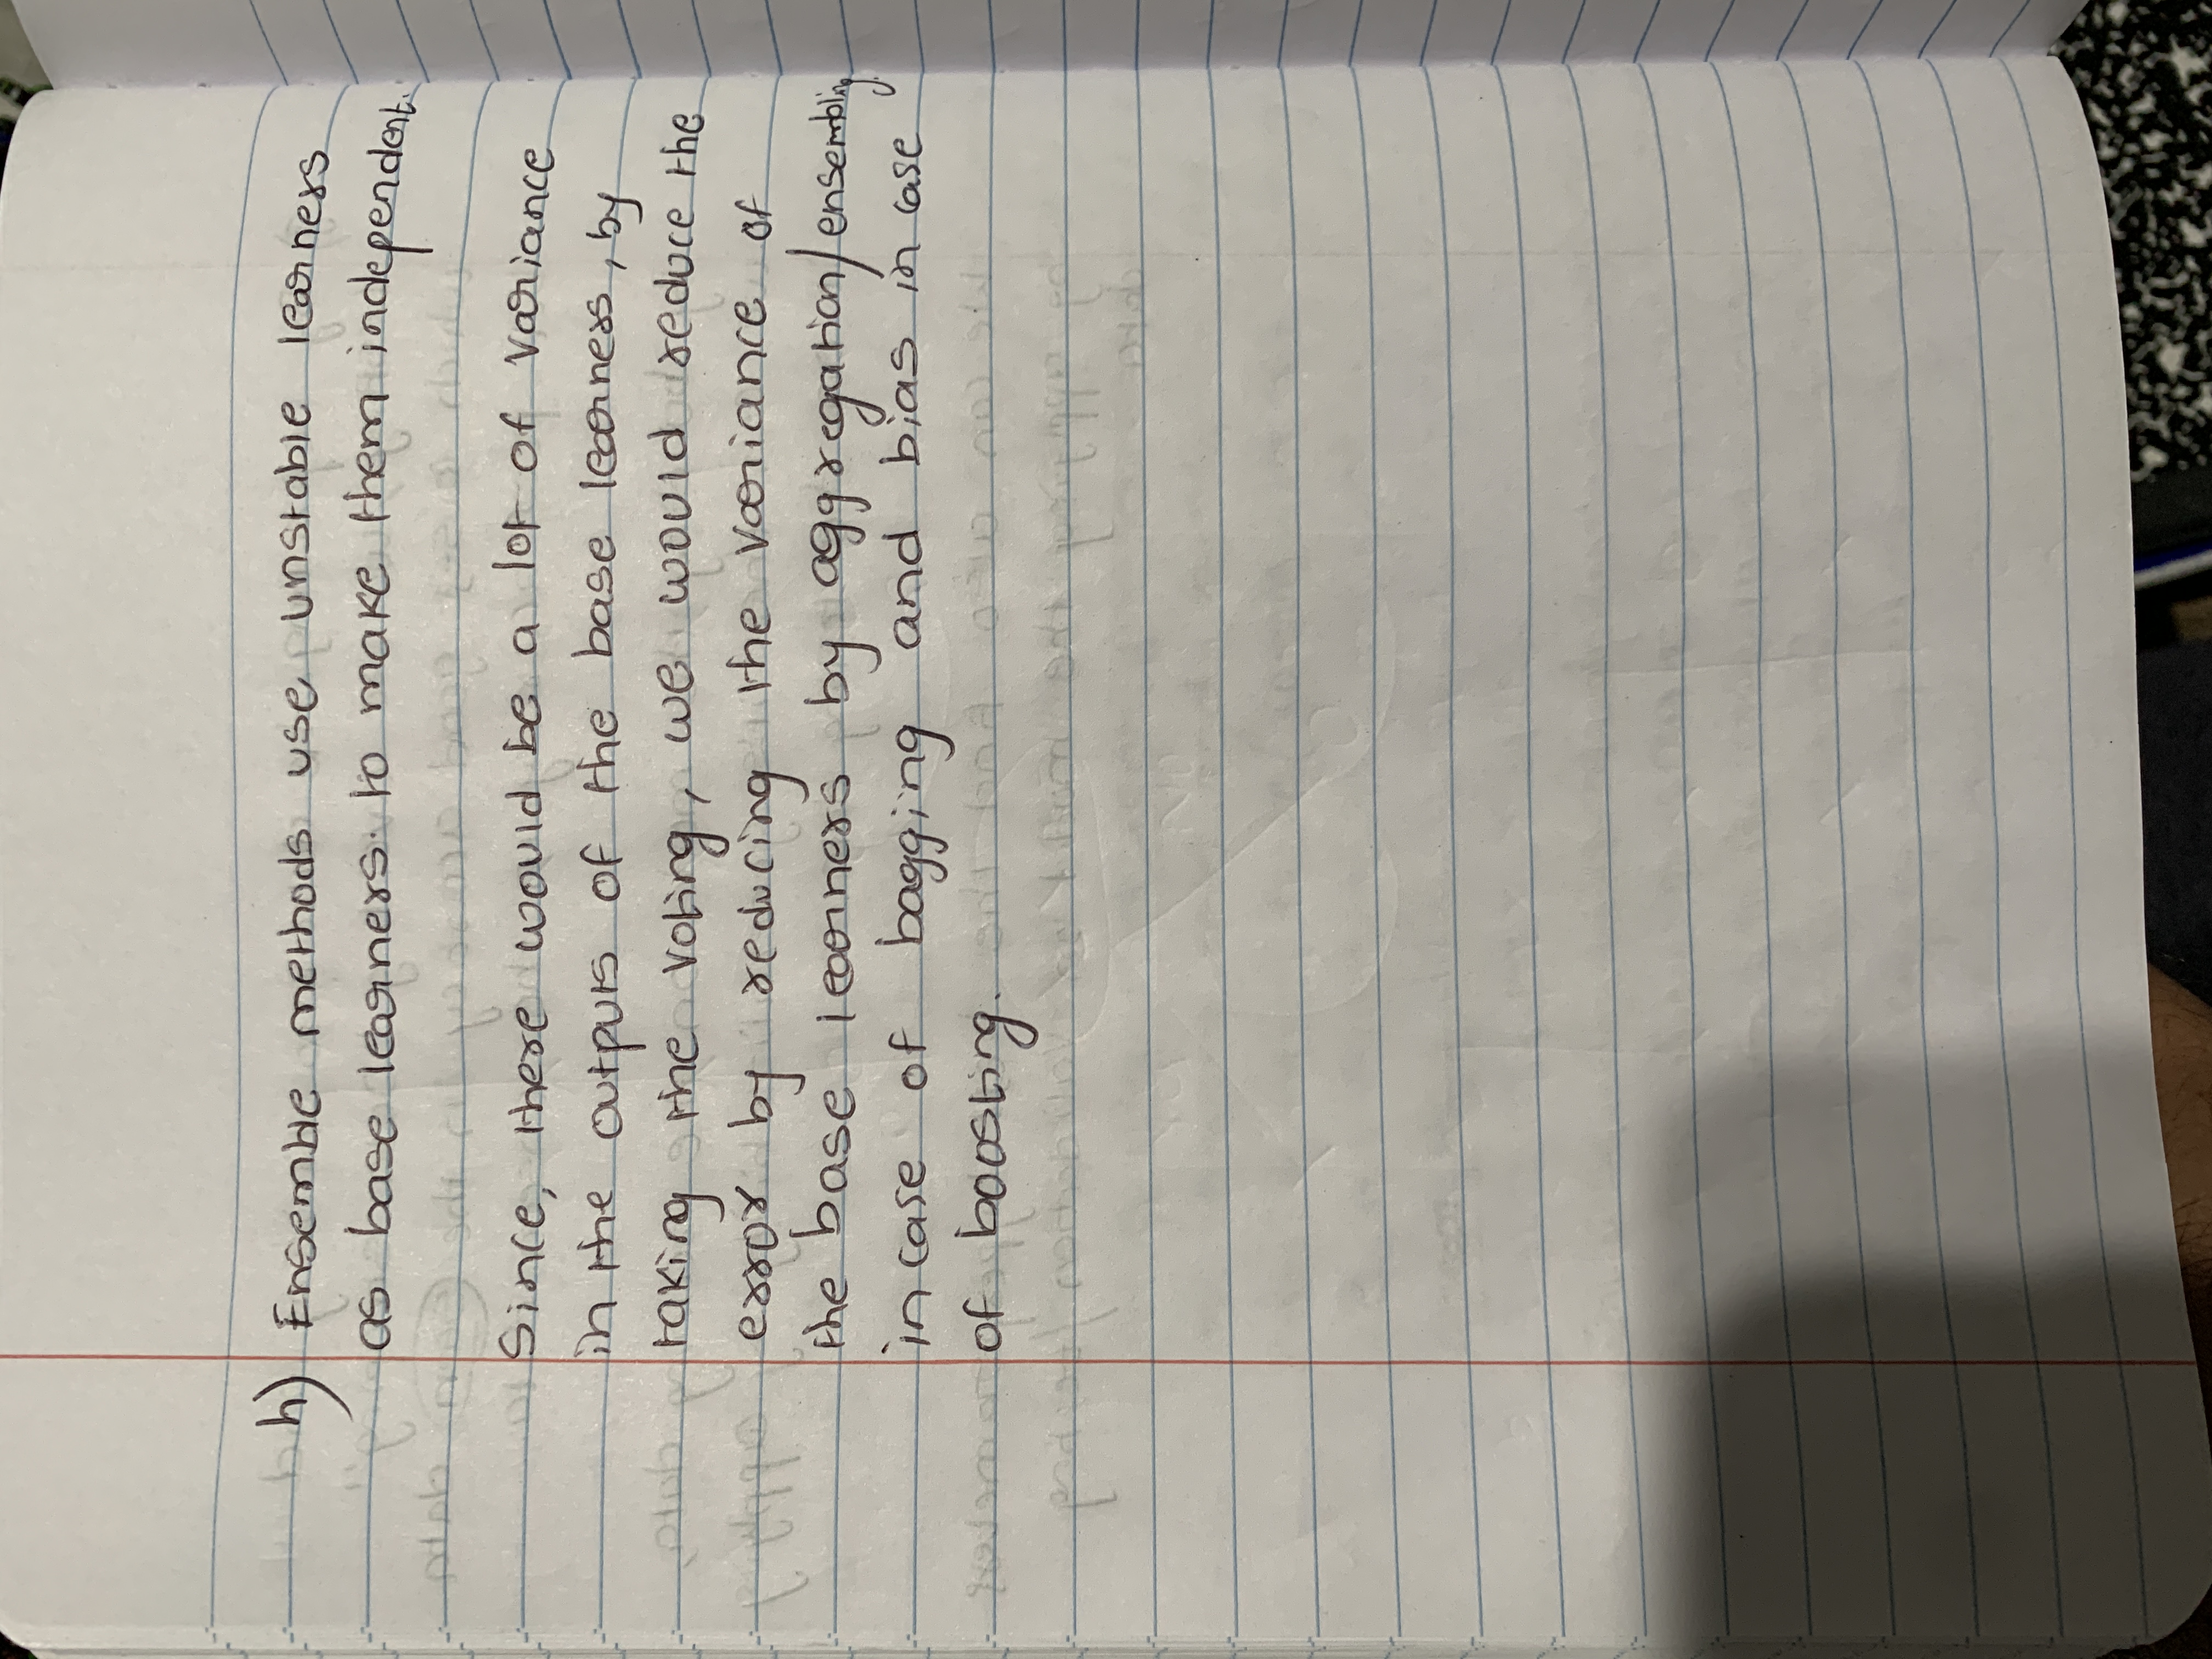 h) Ensemble methods use unstable learners
as base learners. to make them independent.
Since, there would be a lot of variance
in the outputs of the base learners, by
taking the voting, we would reduce the
error by reducing the variance of
the base learners by aggregation/ensembling
in case of bagging and bias in case
of boosting.